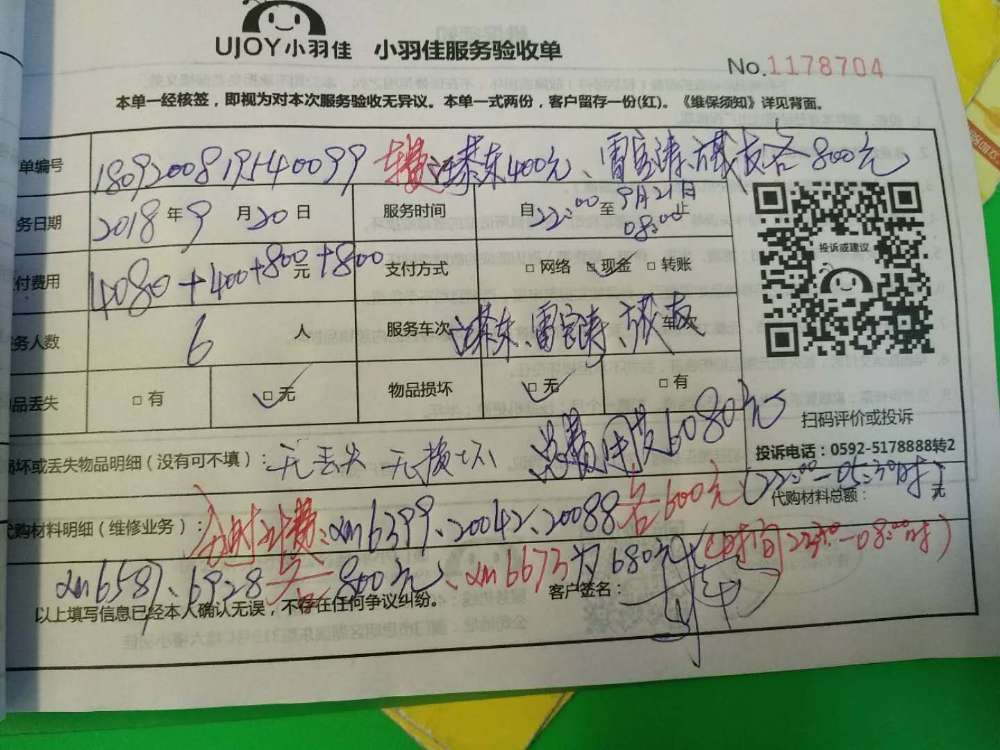 UJOY小羽佳 小羽佳服务验收单
No.1178704
本单一经核签，即视为对本次服务验收无异议。本单一式两份，客户留存一份(红)。《维保须知》详见背面。
单编号 180920081915140099 车费 东400元、雷 涛、 友各800元
务日期 2018年9月20日 服务时间 自22:00至9月21日08:00止
付费用 4080元+400+800+800 支付方式 □网络 □现金 □转账
务人数 6人 服务车次 东、雷 涛、 友 车次
品丢失 □有 □无 物品损坏 □无 □有
投诉或建议
扫码评价或投诉
投诉电话：0592-5178888转2
损坏或丢失物品明细（没有可不填）：无丢失 无损坏 总费用 6080元
(22:00-05:30时)
代购材料总额： 元
代购材料明细（维修业务）： 费:xm6399、20042、20088各600元
xm6587、6928各800元、xm6673为680元(时间23:30-08:00时)
以上填写信息已经本人确认无误，不存在任何争议纠纷。 客户签名：